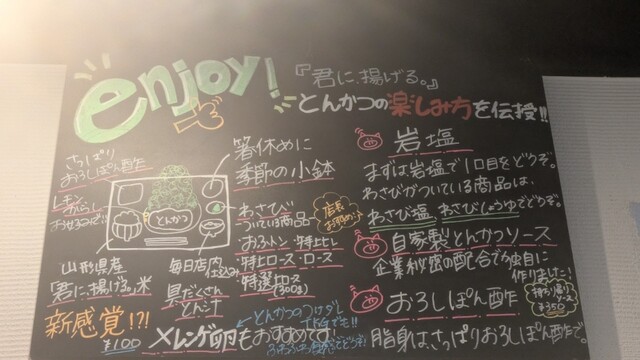 enjoy!
『君に、揚げる。』
とんかつの楽しみ方を伝授!!
さっぱり
おろしぽん酢
レモン
からし
とんかつ
箸休めに
季節の小鉢
わさび
ついている商品
店長
おすすめ
おろトン・特上ヒレ
特上ロース・ロース
特選ロース
(300g)
山形県産
「君に、揚げる。」米
毎日店内
仕込み
具だくさん
とん汁
新感覚!?
¥100
メレンゲ卵もおすすめです!
とんかつのつけダレ
岩塩
まずは岩塩で1口目をどうぞ。
わさびがついている商品は、
わさび塩、わさびしょうゆでどうぞ。
自家製とんかつソース
企業秘密の配合で独自に
作りました!
持ち帰り
ソース
¥350
おろしぽん酢
脂身は、さっぱりおろしぽん酢で。